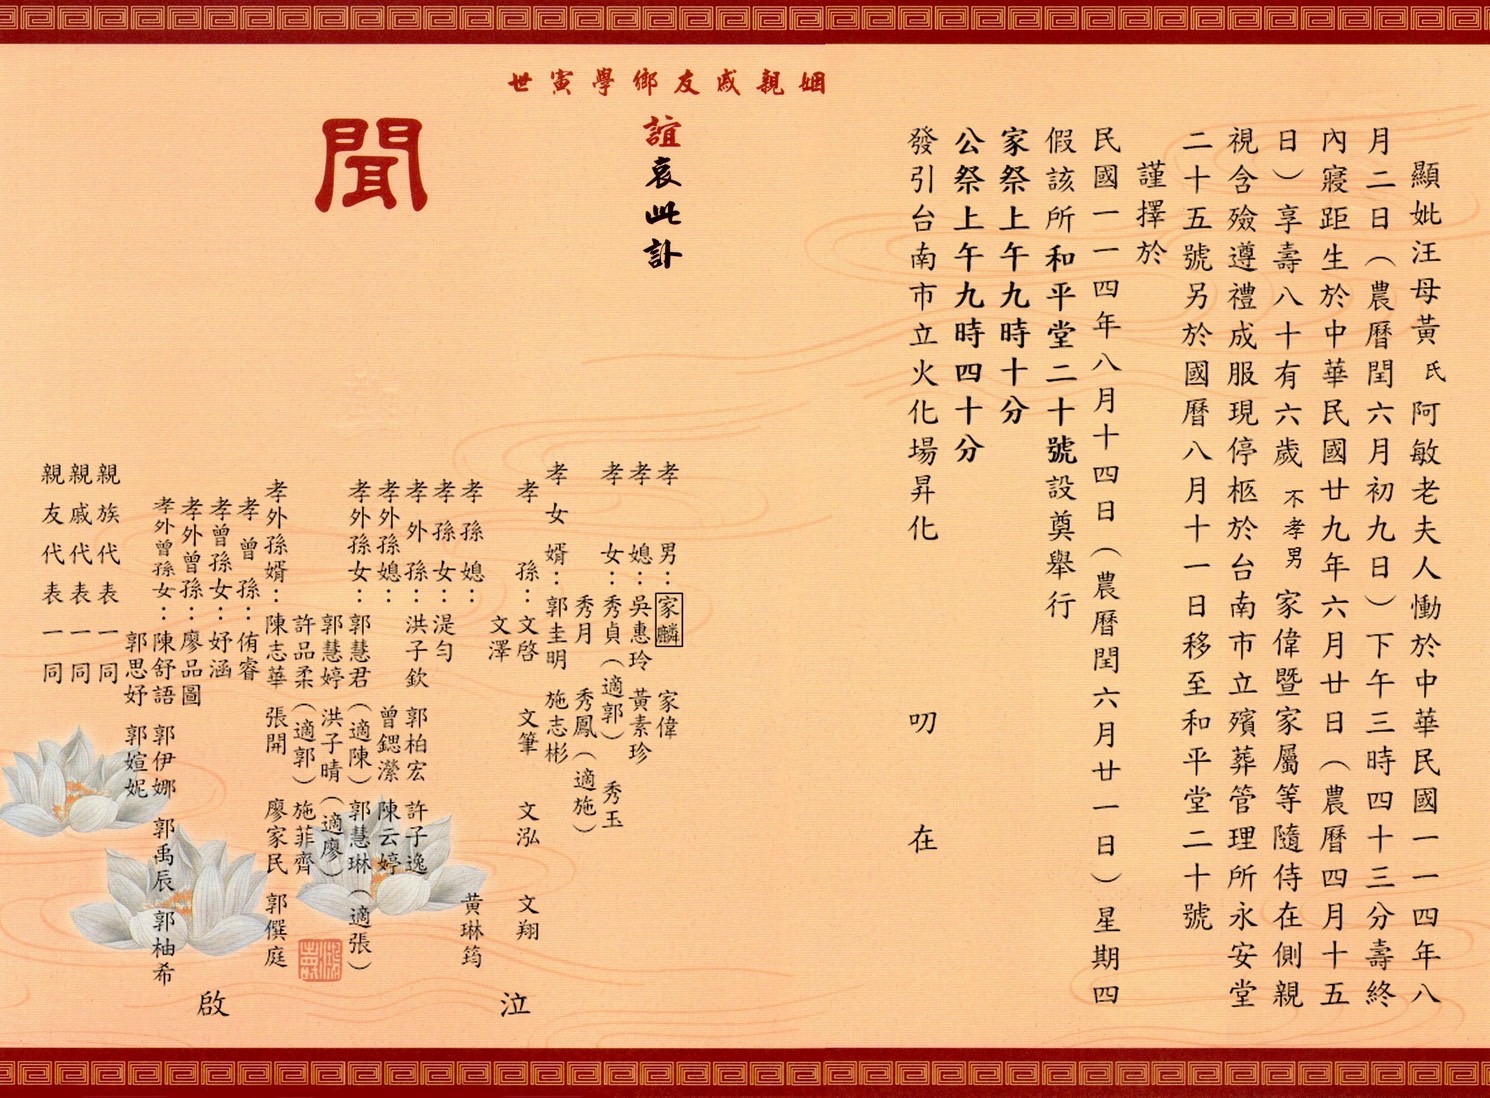 顯妣汪母黃氏阿敏老夫人慟於中華民國一一四年八
月二日（農曆閏六月初九日）下午三時四十三分壽終
內寢距生於中華民國廿九年六月廿日（農曆四月十五
日）享壽八十有六歲不孝男家偉暨家屬等隨侍在側親
視含殮遵禮成服現停柩於台南市立殯葬管理所永安堂
二十五號另於國曆八月十一日移至和平堂二十號
謹擇於
民國一一四年八月十四日（農曆閏六月廿一日）星期四
假該所和平堂二十號設奠舉行
家祭上午九時十分
公祭上午九時四十分
發引台南市立火化場昇化
叨在
姻親戚友鄉學寅世
誼哀此訃
聞
孝男：家麟 家偉
孝媳：吳惠玲 黃素珍
孝女：秀貞（適郭） 秀玉
秀月 秀鳳（適施）
孝女婿：郭圭明 施志彬
孝孫：文啓 文筆 文泓 文翔
文澤
孝孫媳： 黃琳筠
孝孫女：湜勻
孝外孫：洪子欽 郭柏宏 許子逸
孝外孫媳： 曾鍶瀠 陳云婷
孝外孫女：郭慧君（適陳）郭慧琳（適張）
郭慧婷 洪子晴（適廖）
許品柔（適郭）施菲齊
孝外孫婿：陳志華 張開 廖家民 郭僎庭
孝曾孫：侑睿
孝曾孫女：妤涵
孝外曾孫：廖品圖
孝外曾孫女：陳舒語 郭伊娜 郭禹辰 郭柚希
郭思妤 郭媗妮
親族代表一同
親戚代表一同
親友代表一同
泣啟